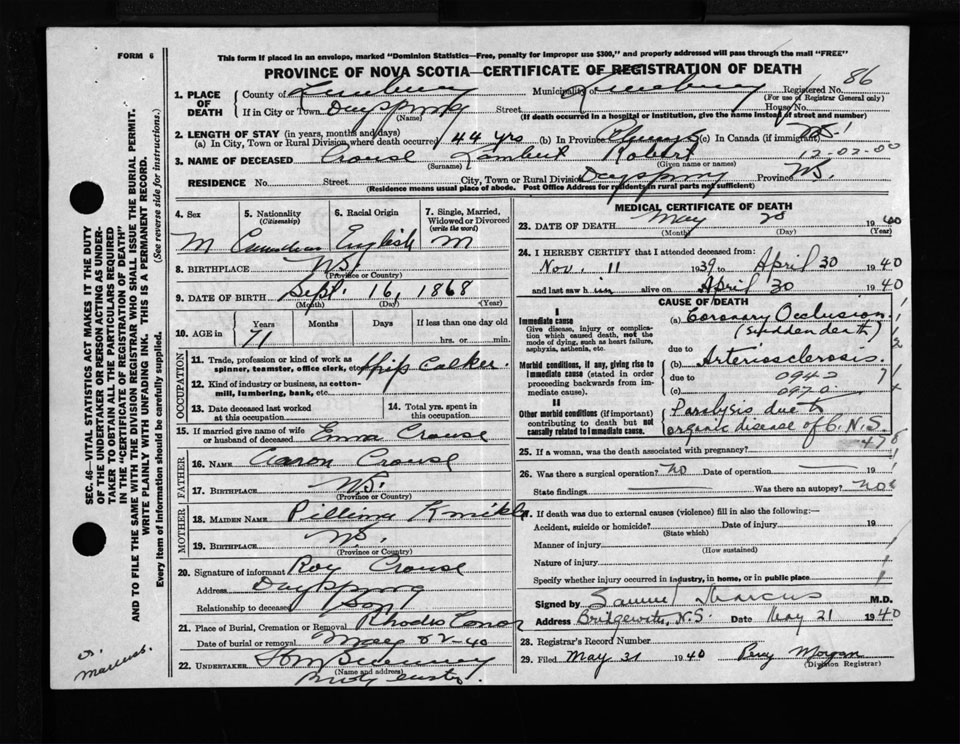 FORM 6
This form if placed in an envelope, marked "Dominion Statistics—Free, penalty for improper use $300," and properly addressed will pass through the mail "FREE"
PROVINCE OF NOVA SCOTIA—CERTIFICATE OF REGISTRATION OF DEATH
86
1. PLACE OF DEATH
County of Lunenburg Municipality of Lunenburg Registered No.
(For use of Registrar General only)
If in City or Town Dayspring Street House No.
(Name) (If death occurred in a hospital or institution, give the name instead of street and number)
2. LENGTH OF STAY (in years, months and days)
(a) In City, Town or Rural Division where death occurred 44 yrs (b) In Province Always (c) In Canada (if immigrant)
3. NAME OF DECEASED Crouse Lambert Robert 12-02-00
(Surname) (Given name or names)
RESIDENCE No. Street City, Town or Rural Division Dayspring Province N.S.
(Residence means usual place of abode. Post Office Address for residents in rural parts not sufficient)
4. Sex 5. Nationality (Citizenship) 6. Racial Origin 7. Single, Married, Widowed or Divorced (write the word)
M Canadian English M
8. BIRTHPLACE N.S.
(Province or Country)
9. DATE OF BIRTH Sept. 16, 1868
(Month) (Day) (Year)
10. AGE in Years Months Days If less than one day old
71 hrs. or min.
OCCUPATION
11. Trade, profession or kind of work as spinner, teamster, office clerk, etc. Ship Calker
12. Kind of industry or business, as cotton-mill, lumbering, bank, etc.
13. Date deceased last worked at this occupation 14. Total yrs. spent in this occupation
15. If married give name of wife or husband of deceased Emma Crouse
FATHER
16. NAME Aaron Crouse
17. BIRTHPLACE N.S.
(Province or Country)
MOTHER
18. MAIDEN NAME
19. BIRTHPLACE N.S.
(Province or Country)
20. Signature of informant Roy Crouse
Address Dayspring
Relationship to deceased Son
21. Place of Burial, Cremation or Removal Rhodes Corner
Date of burial or removal May 22-40
22. UNDERTAKER Sweeny
(Name and address)
MEDICAL CERTIFICATE OF DEATH
23. DATE OF DEATH May 20 1940
(Month) (Day) (Year)
24. I HEREBY CERTIFY that I attended deceased from:
Nov. 11 1939 to April 30 1940
and last saw h im alive on April 30 1940
CAUSE OF DEATH
I
Immediate cause
Give disease, injury or complication which caused death, not the mode of dying, such as heart failure, asphyxia, asthenia, etc.
(a) Coronary Occlusion
(sudden death)
due to
Morbid conditions, if any, giving rise to immediate cause (stated in order proceeding backwards from immediate cause).
(b) Arteriosclerosis.
due to 0942
(c) 0970
II
Other morbid conditions (if important) contributing to death but not causally related to immediate cause.
Paralysis due to
organic disease of C.N.S.
25. If a woman, was the death associated with pregnancy?
26. Was there a surgical operation? no Date of operation 19
State findings Was there an autopsy? no
27. If death was due to external causes (violence) fill in also the following:—
Accident, suicide or homicide? Date of injury 19
(State which)
Manner of injury
(How sustained)
Nature of injury
Specify whether injury occurred in industry, in home, or in public place
Signed by Samuel Marcus M.D.
Address Bridgewater, N.S. Date May 21 1940
28. Registrar's Record Number
29. Filed May 31 1940 Percy Morgan
(Division Registrar)
SEC. 46—VITAL STATISTICS ACT MAKES IT THE DUTY
OF THE UNDERTAKER OR PERSON ACTING AS UNDER-
TAKER TO OBTAIN ALL THE PARTICULARS REQUIRED
IN THE "CERTIFICATE OF REGISTRATION OF DEATH"
AND TO FILE THE SAME WITH THE DIVISION REGISTRAR WHO SHALL ISSUE THE BURIAL PERMIT.
WRITE PLAINLY WITH UNFADING INK. THIS IS A PERMANENT RECORD.
Every item of Information should be carefully supplied. (See reverse side for instructions.)
S. Marcus.